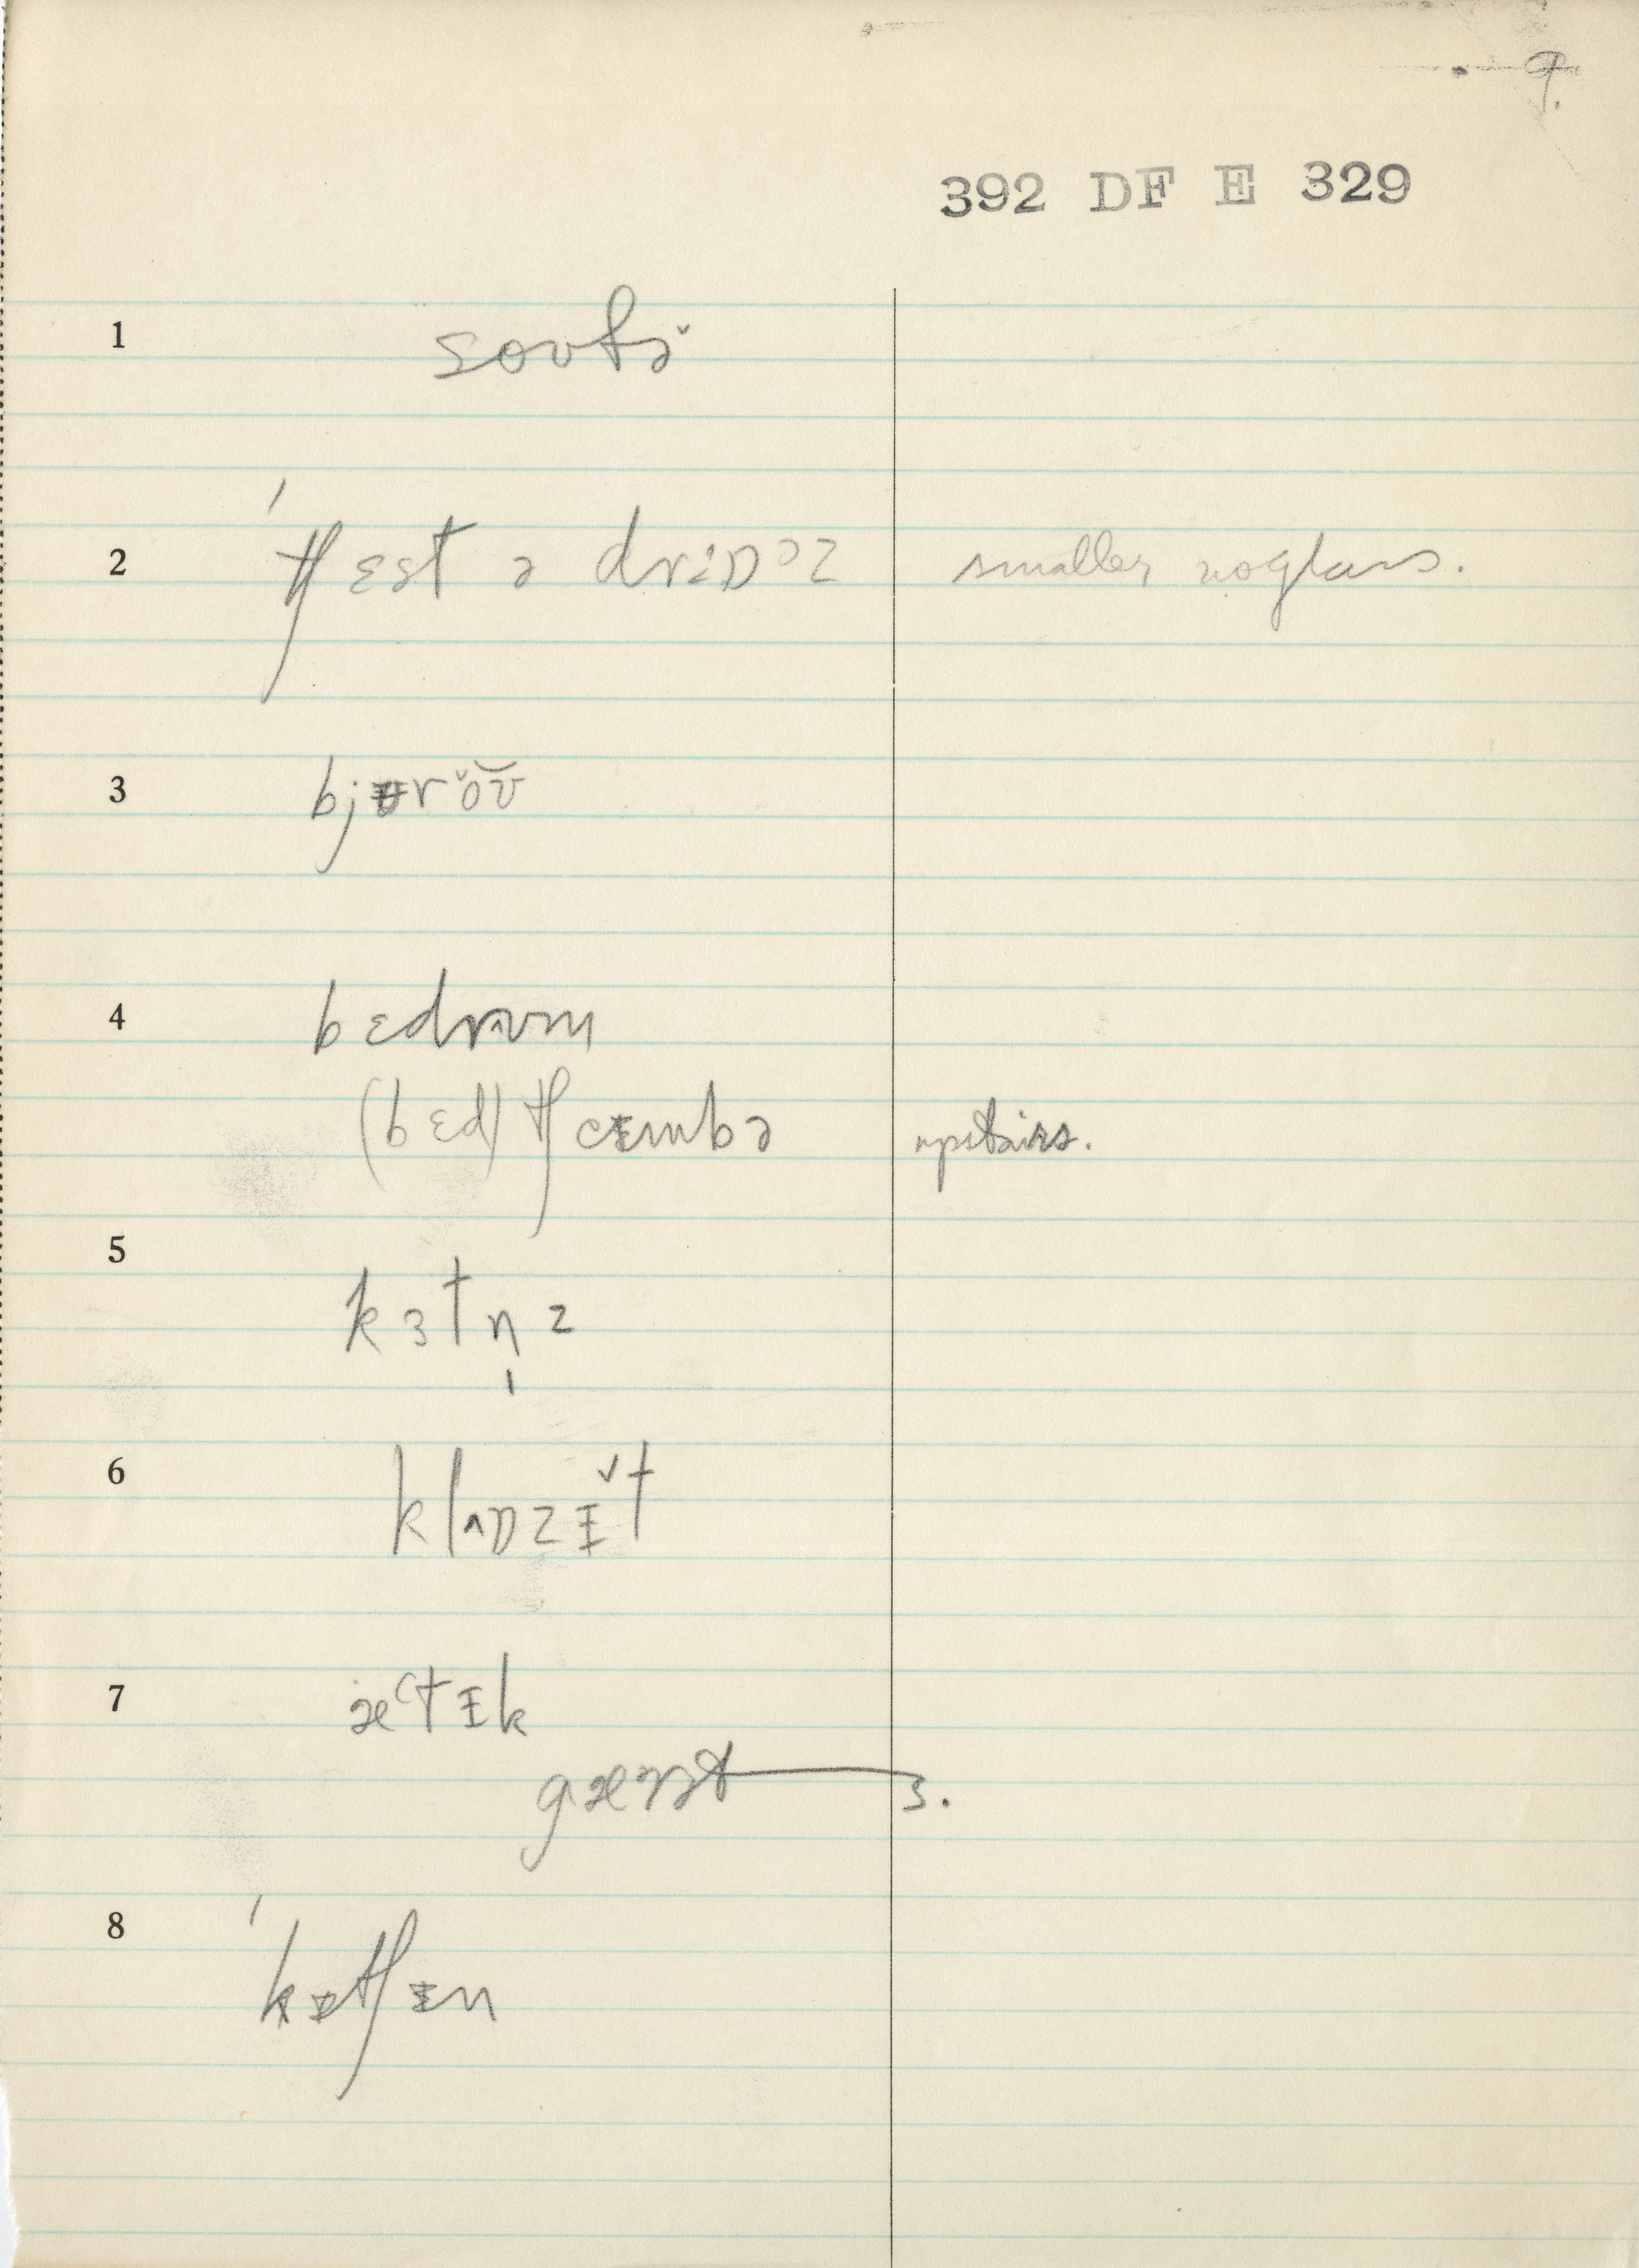 9.
392 DF E 329
1 soʊfə̆
2 ˈtʃɛst ə drɔ^əz smaller no glass.
3 bjʉrŏʊ̆
4 bɛdrʊm
(bɛd) tʃɛmbə upstairs.
5 kɜtn̩z
6 klɒzɪ̆t
7 ætɪk
gærət 3.
8 ˈkɪtʃɪn